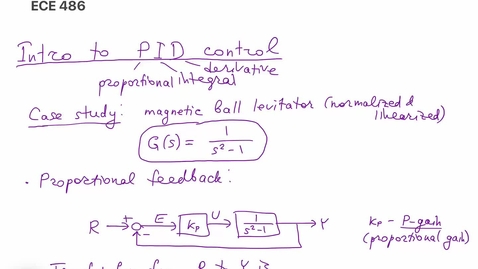 ECE 486
Intro to PID control
proportional integral derivative
Case study: magnetic ball levitator (normalized & linearized)
G(s) = 1/(s²-1)
• Proportional feedback:
R + - E kp U 1/(s²-1) Y
kp - P-gain
(proportional gain)